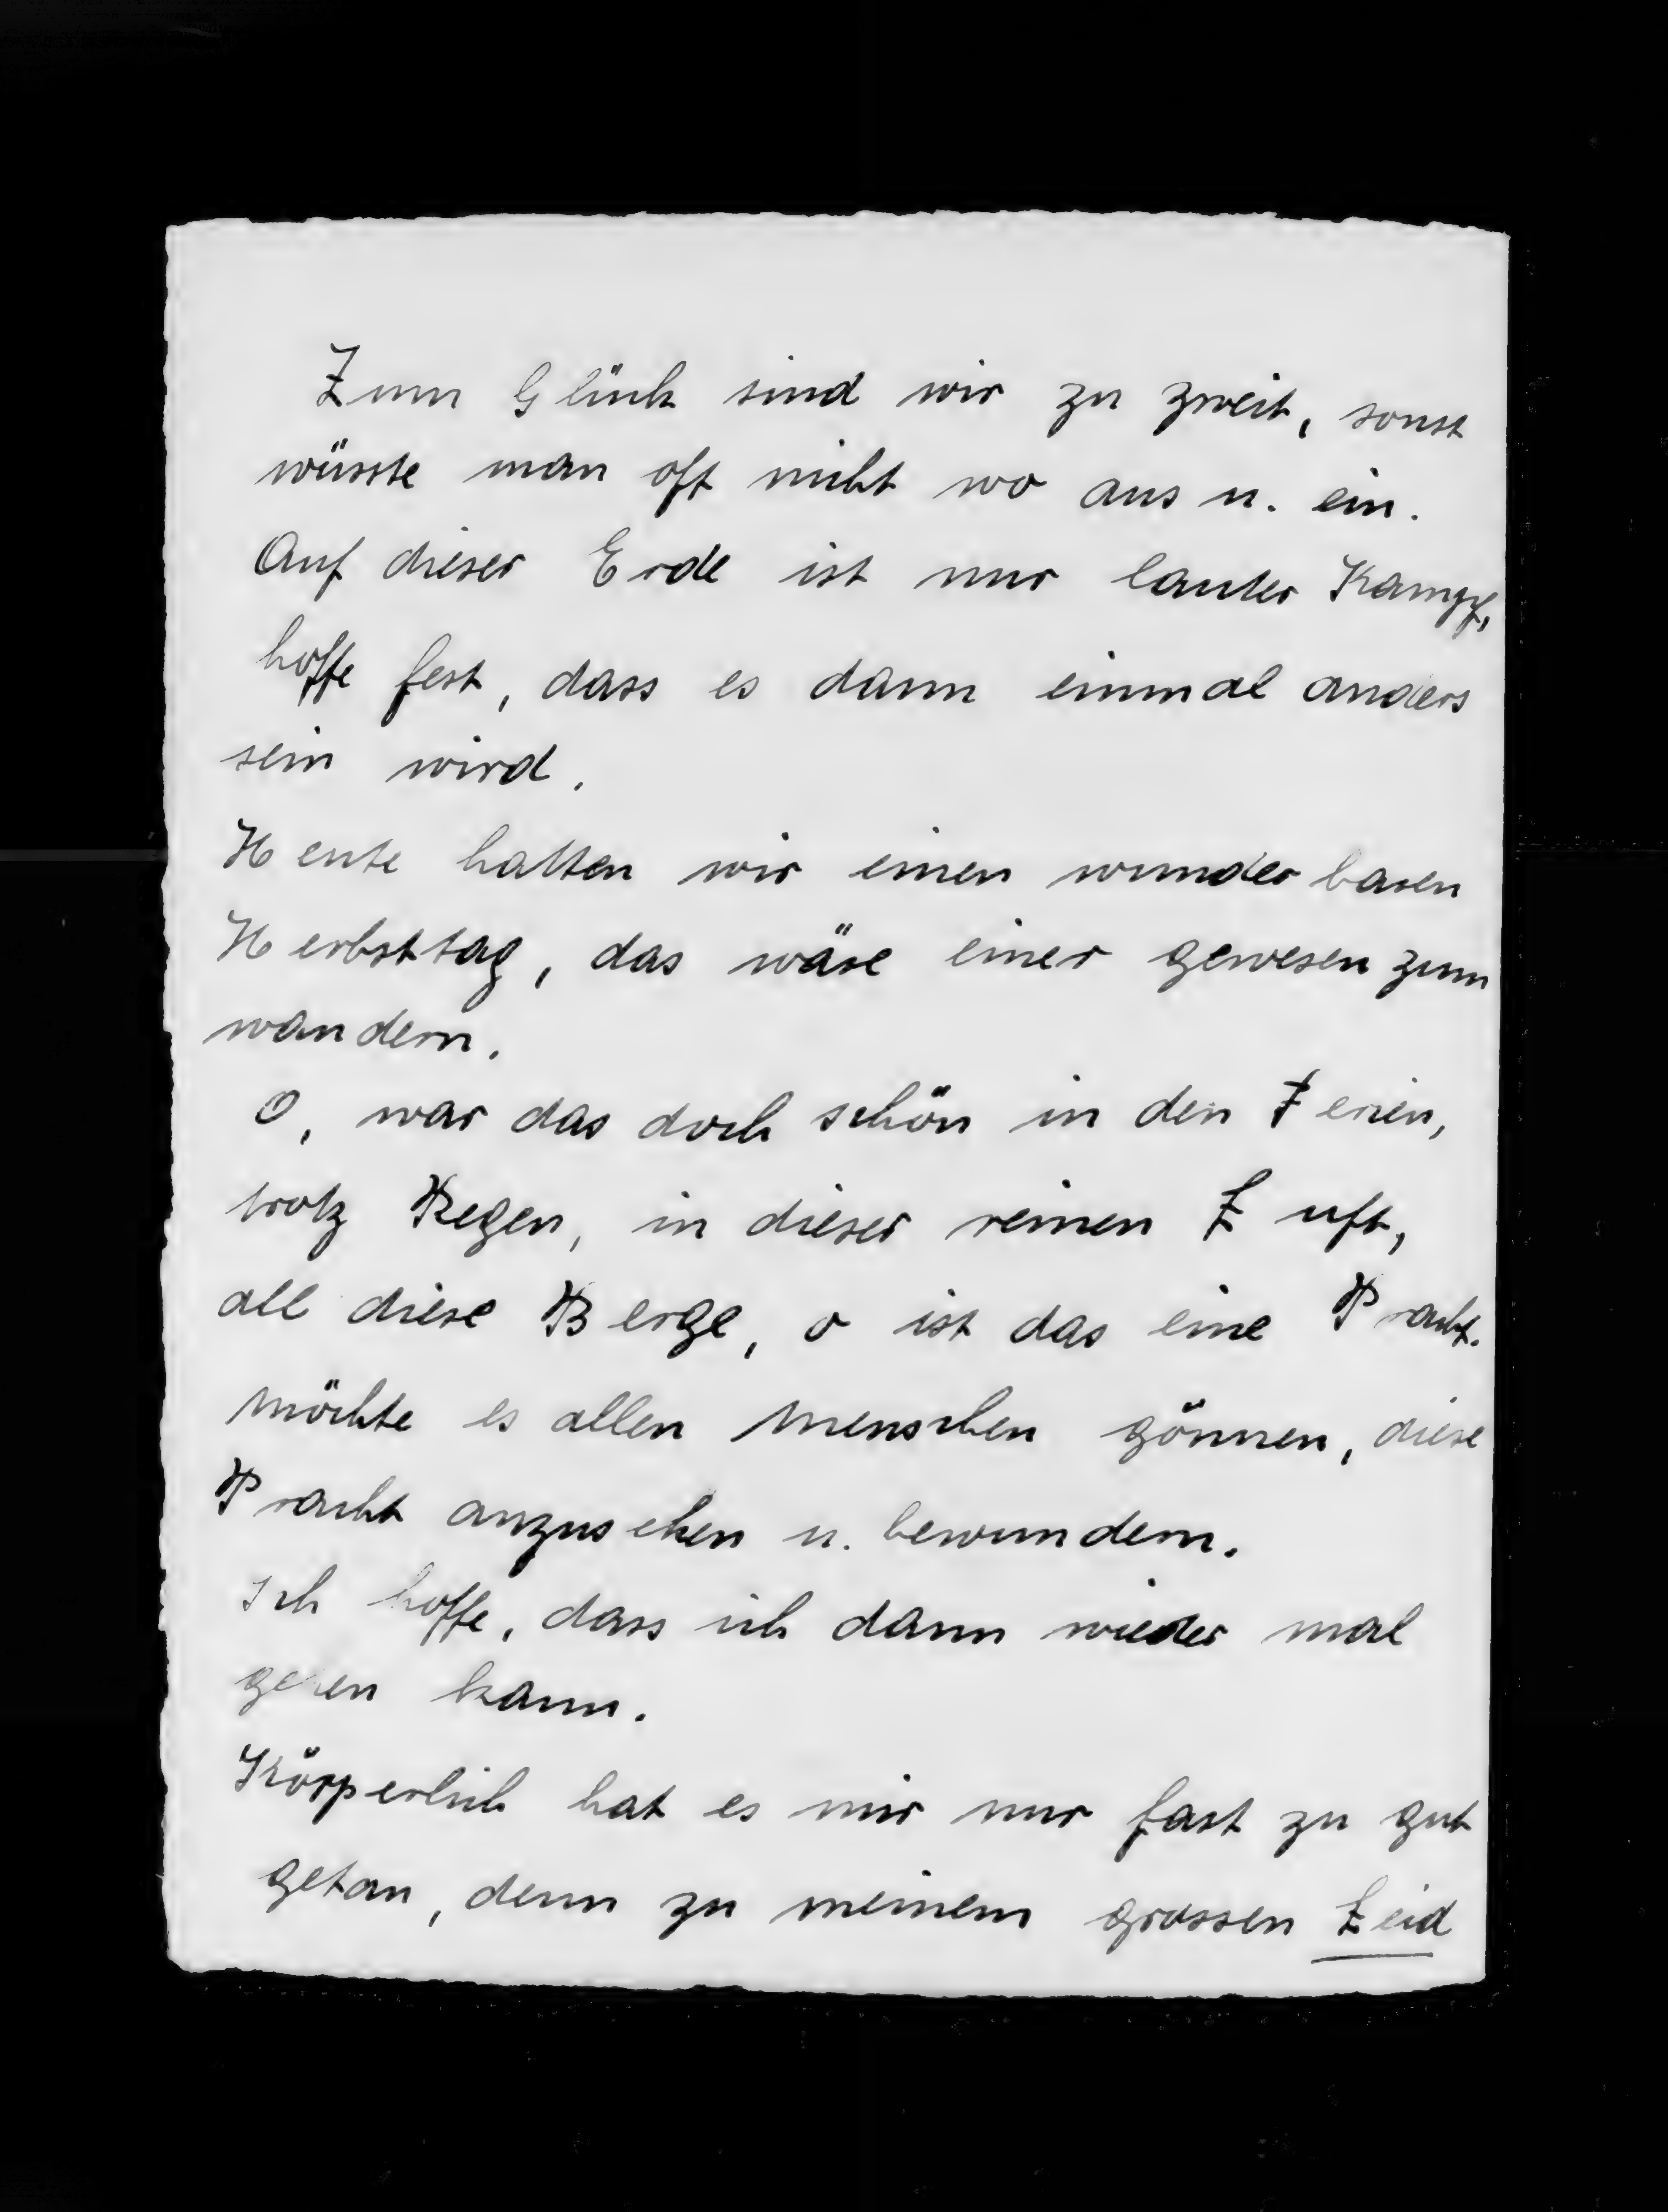 Zum Glück sind wir zu zweit, sonst
wüsste man oft nicht wo aus u. ein.
Auf dieser Erde ist nur lauter Kampf,
hoffe fest, dass es dann einmal anders
sein wird.
Heute hatten wir einen wunderbaren
Herbsttag, das wäre einer gewesen zum
wandern.
O, war das doch schön in den Ferien,
trotz Regen, in dieser reinen Luft,
all diese Berge, o ist das eine Pracht.
Möchte es allen Menschen gönnen, diese
Pracht anzusehen u. bewundern.
Ich hoffe, dass ich dann wieder mal
gehen kann.
Körperlich hat es mir nur fast zu gut
getan, denn zu meinem grossen Leid